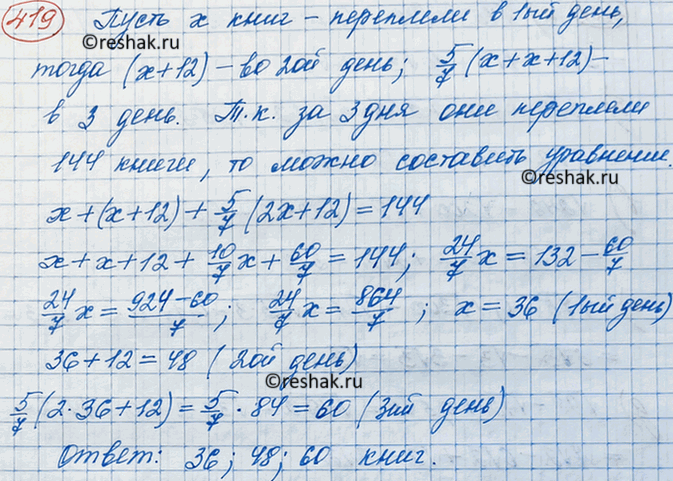 419 Пусть x книг - переплели в 1ый день,
©reshak.ru
тогда (x+12) - во 2ой день; 5/7 (x+x+12) -
в 3 день. Т.к. за 3 дня они переплели
144 книги, то можно составить уравнение.
©reshak.ru
x+(x+12)+5/7(2x+12)=144
x+x+12+10/7x+60/7=144; 24/7x=132-60/7
24/7x=924-60/7; 24/7x=864/7; x=36 (1ый день)
36+12=48 (2ой день)
©reshak.ru
5/7(2·36+12)=5/7·84=60 (3ий день)
Ответ: 36; 48; 60 книг.
©reshak.ru